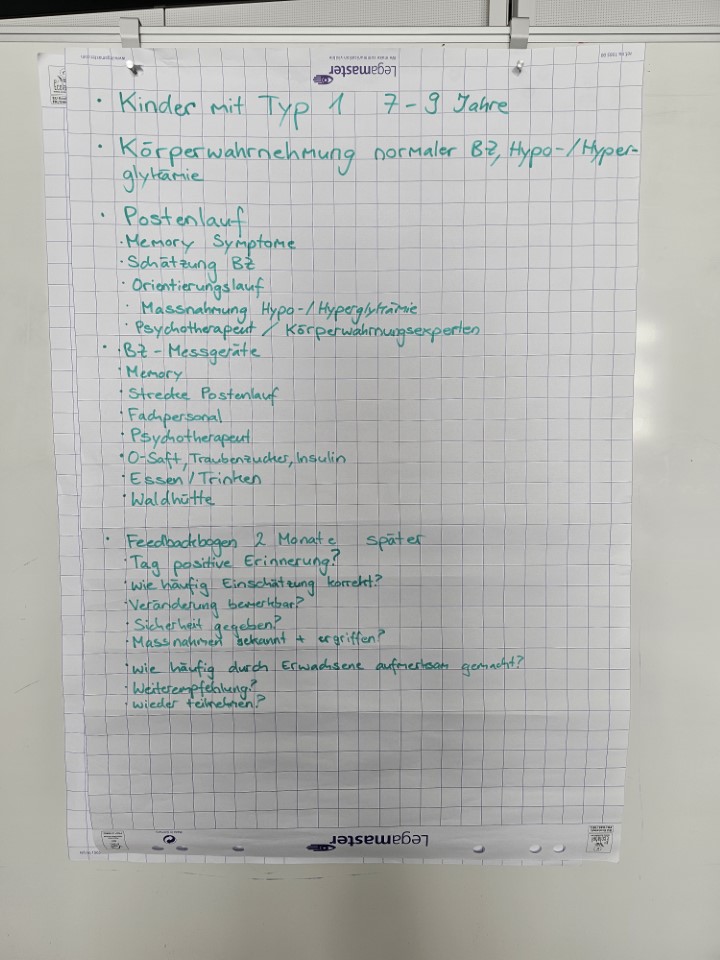 Legamaster
• Kinder mit Typ 1 7-9 Jahre
• Körperwahrnehmung normaler BZ, Hypo-/Hyper-
glykämie
• Postenlauf
• Memory Symptome
• Schätzung BZ
• Orientierungslauf
• Massnahmung Hypo-/Hyperglykämie
• Psychotherapeut / Körperwahrnungsexperten
• • BZ-Messgeräte
• Memory
• Strecke Postenlauf
• Fachpersonal
• Psychotherapeut
• O-Saft, Traubenzucker, Insulin
• Essen/Trinken
• Waldhütte
• Feedbackbogen 2 Monate später
• Tag positive Erinnerung?
• Wie häufig Einschätzung korrekt?
• Veränderung bemerkbar?
• Sicherheit gegeben?
• Massnahmen bekannt + ergriffen?
• Wie häufig durch Erwachsene aufmerksam gemacht?
• Weiterempfehlung?
• Wieder teilnehmen?
Legamaster